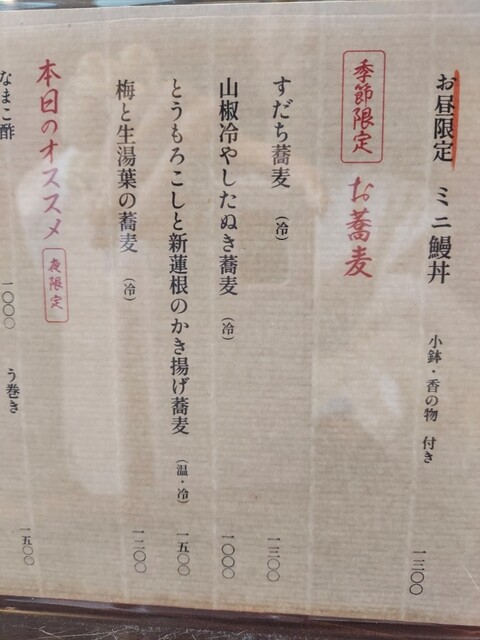 お昼限定 ミニ鰻丼 小鉢・香の物 付き
季節限定 お蕎麦
すだち蕎麦 (冷)
山椒冷やしたぬき蕎麦 (冷) 一〇〇〇
とうもろこしと新蓮根のかき揚げ蕎麦 (温・冷) 一五〇〇
梅と生湯葉の蕎麦 (冷) 一二〇〇
本日のオススメ 夜限定
なまこ酢 一〇〇〇 う巻き 一五〇〇